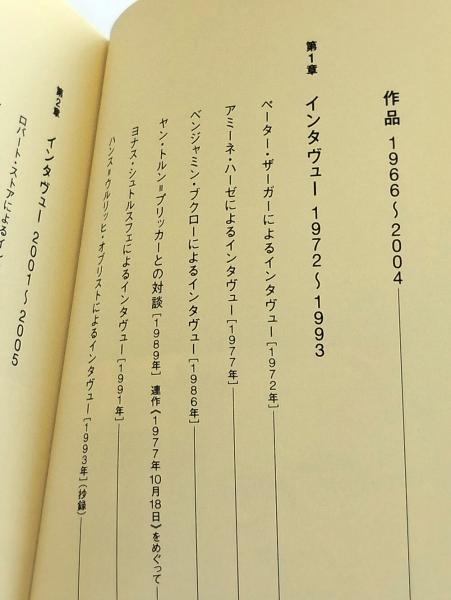 作品 1966〜2004
第1章 インタヴュー 1972〜1993
ペーター・ザーガーによるインタヴュー[1972年]
アミーネ・ハーゼによるインタヴュー[1977年]
ベンジャミン・ブクローによるインタヴュー[1986年]
ヤン・トルン=プリッカーとの対談[1989年] 連作《1977年10月18日》をめぐって
ヨナス・シュトルスフェによるインタヴュー[1991年]
ハンス=ウルリッヒ・オブリストによるインタヴュー[1993年](抄録)
第2章 インタヴュー 2001〜2005
ロバート・ストアによるイン